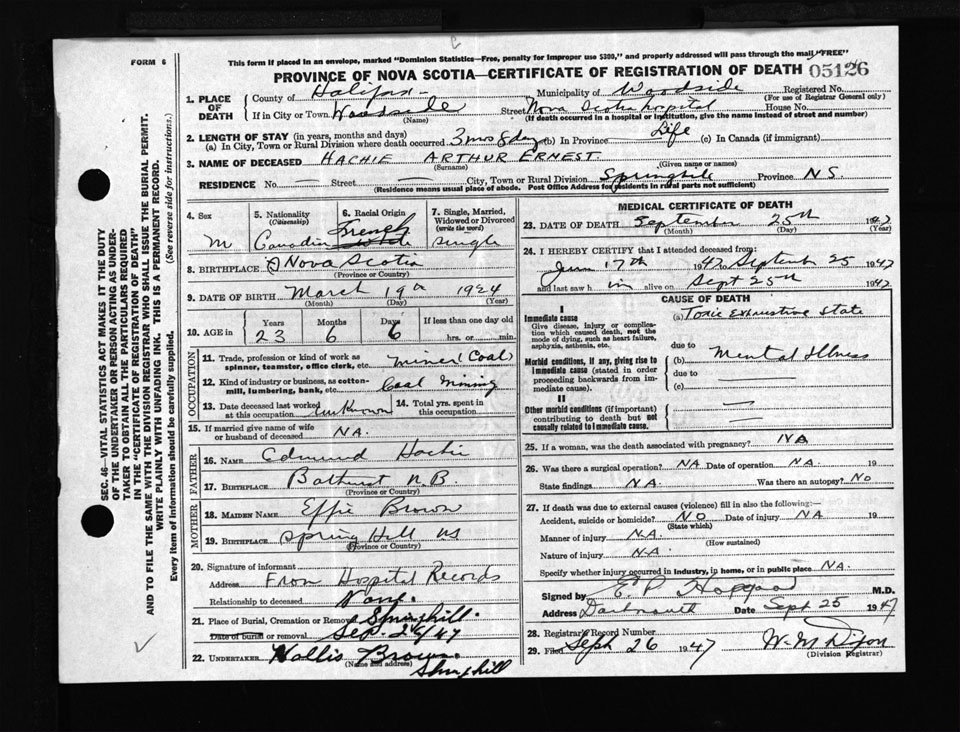 FORM 6
This form if placed in an envelope, marked "Dominion Statistics—Free, penalty for improper use $300," and properly addressed will pass through the mail "FREE"
PROVINCE OF NOVA SCOTIA—CERTIFICATE OF REGISTRATION OF DEATH 05126
1. PLACE OF DEATH
County of Halifax Municipality of Woodside Registered No.
(For use of Registrar General only)
If in City or Town Woodside Street Nova Scotia Hospital House No.
(Name) (If death occurred in a hospital or institution, give the name instead of street and number)
2. LENGTH OF STAY (in years, months and days)
(a) In City, Town or Rural Division where death occurred 3 mos 8 days (b) In Province Life (c) In Canada (if immigrant)
3. NAME OF DECEASED HACHIE ARTHUR ERNEST.
(Surname) (Given name or names)
RESIDENCE No. — Street — City, Town or Rural Division Springhill Province N.S.
(Residence means usual place of abode. Post Office Address for residents in rural parts not sufficient)
4. Sex M
5. Nationality (Citizenship) Canadian
6. Racial Origin French
7. Single, Married, Widowed or Divorced (write the word) single
8. BIRTHPLACE Nova Scotia
(Province or Country)
9. DATE OF BIRTH March 19th 1924
(Month) (Day) (Year)
10. AGE in Years Months Days If less than one day old
23 6 6 hrs. or min.
OCCUPATION
11. Trade, profession or kind of work as spinner, teamster, office clerk, etc. miner (Coal)
12. Kind of industry or business, as cotton-mill, lumbering, bank, etc. Coal Mining
13. Date deceased last worked at this occupation unknown
14. Total yrs. spent in this occupation
15. If married give name of wife or husband of deceased NA.
FATHER
16. NAME Edmund Hachie
17. BIRTHPLACE Bathurst N.B.
(Province or Country)
MOTHER
18. MAIDEN NAME Effie Brown
19. BIRTHPLACE Spring Hill NS
(Province or Country)
20. Signature of informant
Address From Hospital Records
Relationship to deceased None.
21. Place of Burial, Cremation or Removal Springhill.
Date of burial or removal Sep. 26/47
22. UNDERTAKER Hollis Brown.
(Name and address) Springhill
MEDICAL CERTIFICATE OF DEATH
23. DATE OF DEATH September 25th 1947
(Month) (Day) (Year)
24. I HEREBY CERTIFY that I attended deceased from:
June 17th 1947 to September 25 1947
and last saw h im alive on Sept 25th 1947
CAUSE OF DEATH
I
Immediate cause
Give disease, injury or complication which caused death, not the mode of dying, such as heart failure, asphyxia, asthenia, etc.
(a) Toxic Exhaustive State
due to
Morbid conditions, if any, giving rise to immediate cause (stated in order proceeding backwards from immediate cause).
(b) Mental Illness
due to —
(c)
II
Other morbid conditions (if important) contributing to death but not causally related to immediate cause.
25. If a woman, was the death associated with pregnancy? NA
26. Was there a surgical operation? NA Date of operation NA 19
State findings N.A. Was there an autopsy? No
27. If death was due to external causes (violence) fill in also the following:—
Accident, suicide or homicide? NO Date of injury NA 19
(State which)
Manner of injury N.A.
(How sustained)
Nature of injury N.A.
Specify whether injury occurred in industry, in home, or in public place NA.
Signed by E. P. M.D.
Address Dartmouth Date Sept 25 1947
28. Registrar's Record Number
29. Filed Sept 26 1947 W. M. Dixon
(Division Registrar)
SEC. 46—VITAL STATISTICS ACT MAKES IT THE DUTY
OF THE UNDERTAKER OR PERSON ACTING AS UNDER-
TAKER TO OBTAIN ALL THE PARTICULARS REQUIRED
IN THE "CERTIFICATE OF REGISTRATION OF DEATH"
AND TO FILE THE SAME WITH THE DIVISION REGISTRAR WHO SHALL ISSUE THE BURIAL PERMIT.
WRITE PLAINLY WITH UNFADING INK. THIS IS A PERMANENT RECORD.
Every item of information should be carefully supplied. (See reverse side for instructions.)